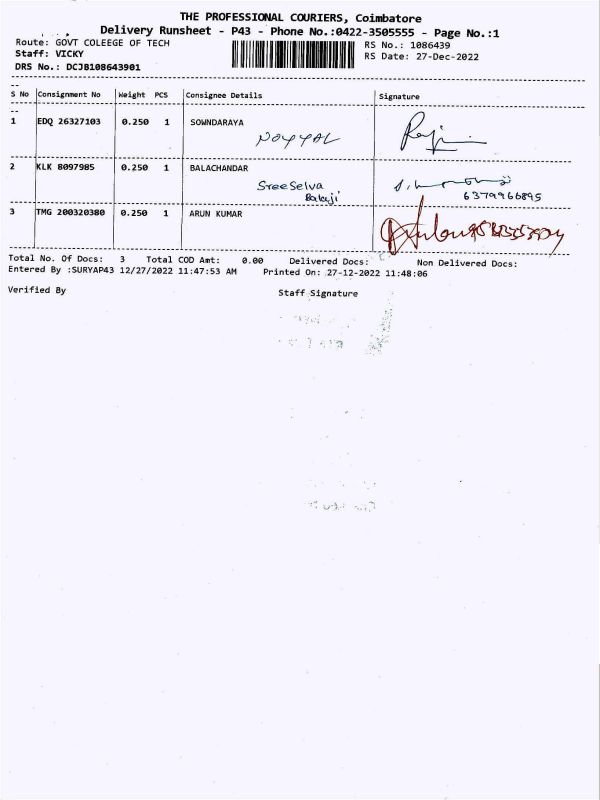 THE PROFESSIONAL COURIERS, Coimbatore
Delivery Runsheet - P43 - Phone No.:0422-3505555 - Page No.:1
Route: GOVT COLEEGE OF TECH RS No.: 1086439
Staff: VICKY RS Date: 27-Dec-2022
DRS No.: DCJB108643901
S No Consignment No Weight PCS Consignee Details Signature
1 EDQ 26327103 0.250 1 SOWNDARAYA
NOYYAL
2 KLK 8097985 0.250 1 BALACHANDAR
SreeSelva
Balaji 6379966895
3 TMG 200320380 0.250 1 ARUN KUMAR
Total No. Of Docs: 3 Total COD Amt: 0.00 Delivered Docs: Non Delivered Docs:
Entered By :SURYAP43 12/27/2022 11:47:53 AM Printed On: 27-12-2022 11:48:06
Verified By Staff Signature